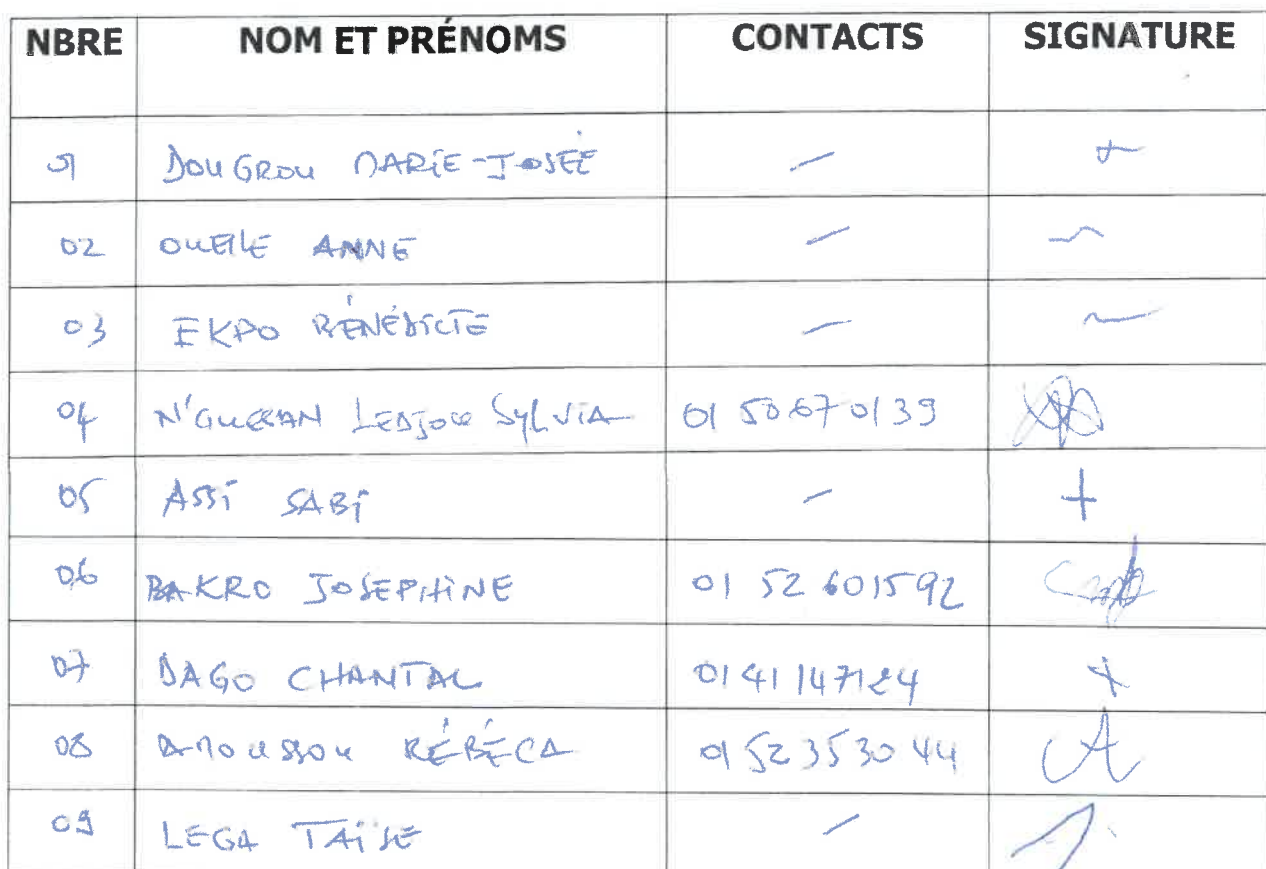 NBRE NOM ET PRÉNOMS CONTACTS SIGNATURE
01 DOUGROU MARIE-JOSÉE — +
02 OUEILE ANNE —
03 EKPO BÉNÉDICTE —
04 N'GUESSAN LEDJOU SYLVIA 01 50 67 01 39
05 ASSI SABI — +
06 BAKRO JOSEPHINE 01 52 601592
07 DAGO CHANTAL 0141147124 +
08 AMOUSSOU RÉBÉCA 01 52 35 30 44 A
09 LEGA TAÏSE —